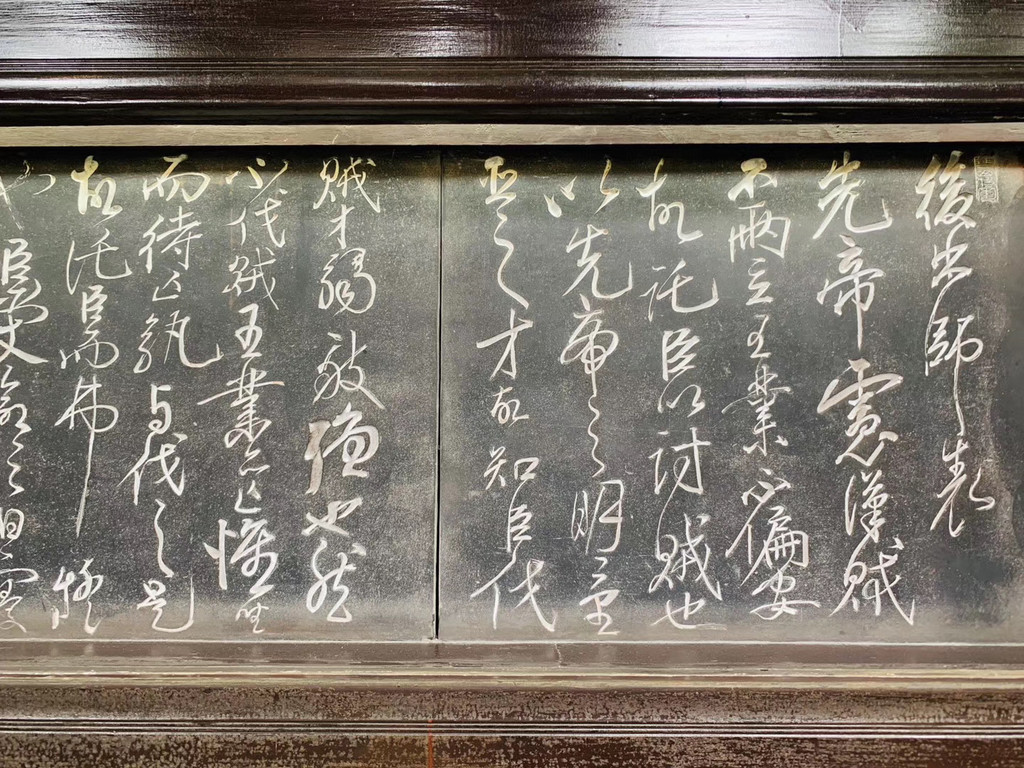 後出師表
先帝慮漢賊
不兩立王業不偏安
故託臣以討賊也
以先帝之明量
臣之才故知臣伐
賊才弱敵強也然
不伐賊王業亦亡惟坐
而待亡孰与伐之是
故託臣而弗疑
也臣受命之日寢